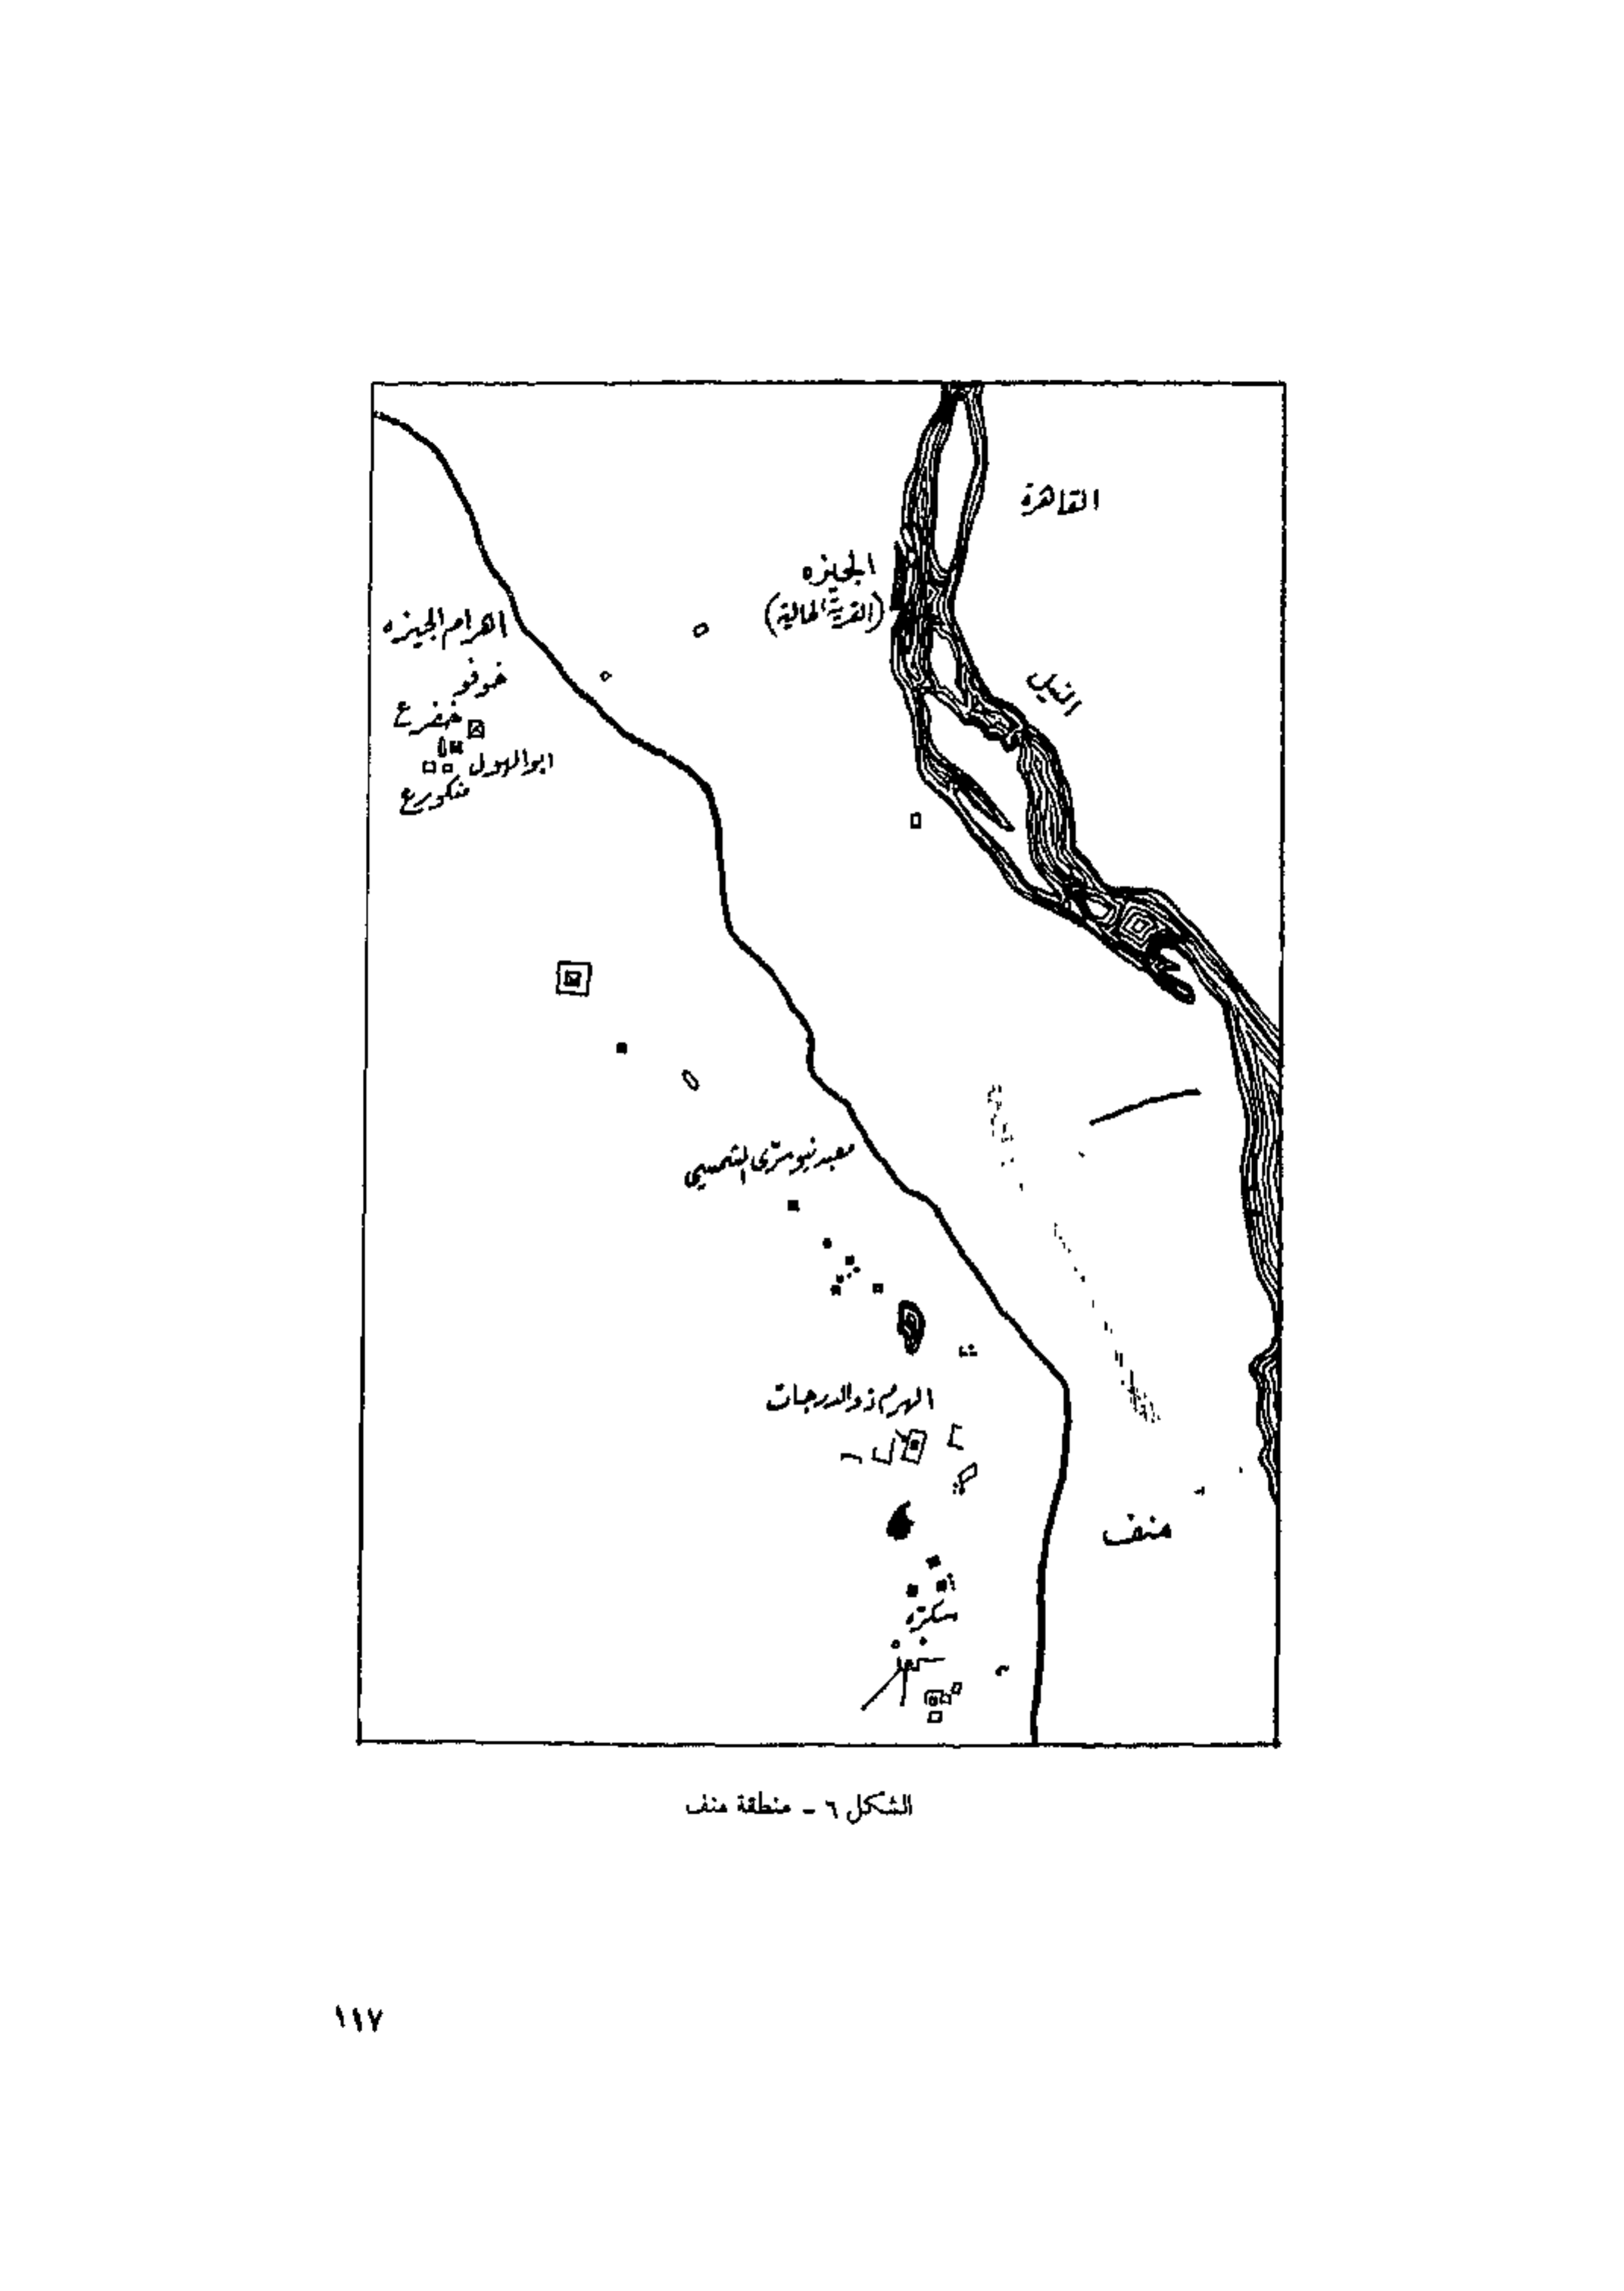 القاهرة
الجيزه
(القرية الحالية)
النيل
اهرام الجيزه
خوفو
خفرع
ابوالهول
منكورع
معبد نيوسرّى الشمسي
الهرم ذو الدرجات
منف
سكرّه
الشكل ٦ - منطقة منف
١١٧